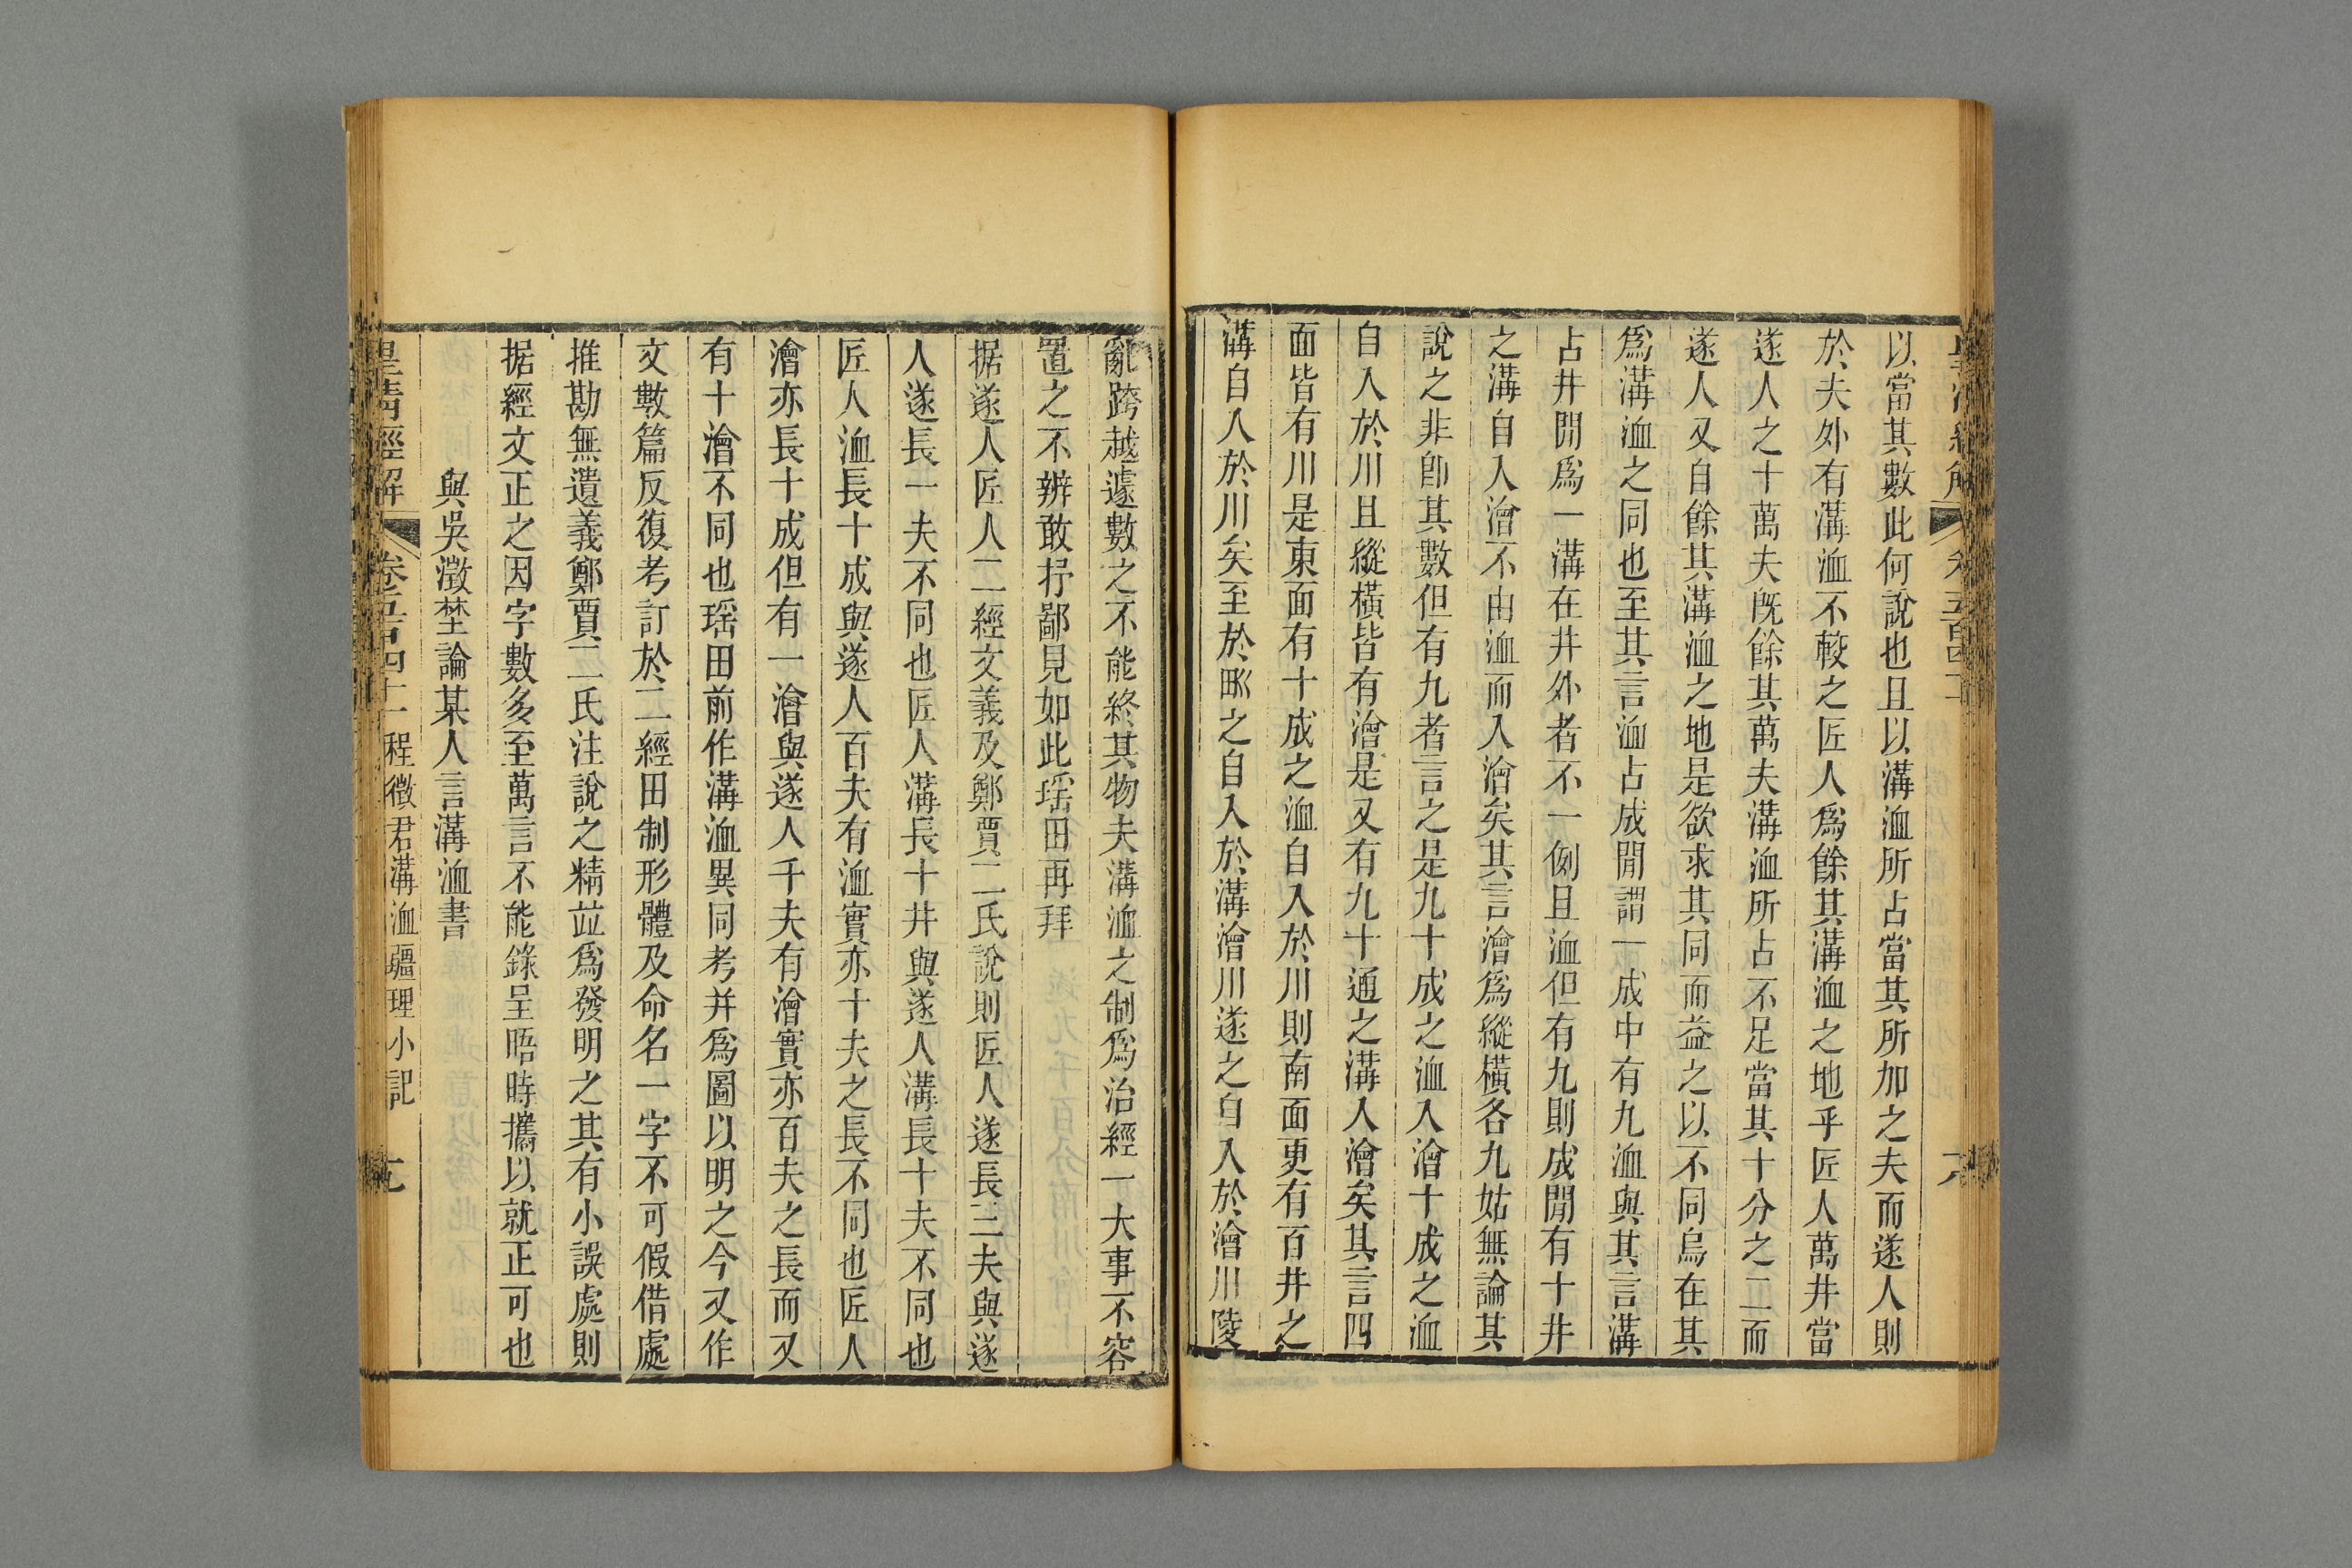 以當其數此何說也且以溝洫所占當其所加之夫而遂人則
於夫外有溝洫不較之匠人爲餘其溝洫之地乎匠人萬井當
遂人之十萬夫旣餘其萬夫溝洫所占不足當其十分之二而
遂人又自餘其溝洫之地是欲求其同而益之以不同烏在其
爲溝洫之同也至其言洫占成閒謂一成中有九洫與其言溝
占井閒爲一溝在井外者不一例且洫但有九則成閒有十井
之溝自入澮不由洫而入澮矣其言澮爲縱橫各九姑無論其
說之非卽其數但有九者言之是九十成之洫入澮十成之洫
自入於川且縱橫皆有澮是又有九十通之溝入澮矣其言四
面皆有川是東面有十成之洫自入於川則南面更有百井之
溝自入於川矣至於𤰕之自入於溝澮川遂之自入於澮川陵
亂跨越遽數之不能終其物夫溝洫之制爲治經一大事不容
置之不辨敢抒鄙見如此瑶田再拜
据遂人匠人二經文義及鄭賈二氏說則匠人遂長三夫與遂
人遂長一夫不同也匠人溝長十井與遂人溝長十夫不同也
匠人洫長十成與遂人百夫有洫實亦十夫之長不同也匠人
澮亦長十成但有一澮與遂人千夫有澮實亦百夫之長而又
有十澮不同也瑶田前作溝洫異同考并爲圖以明之今又作
文數篇反復考訂於二經田制形體及命名一字不可假借處
推勘無遺義鄭賈二氏注說之精竝爲發明之其有小誤處則
据經文正之因字數多至萬言不能錄呈晤時攜以就正可也
與吳澂埜論某人言溝洫書
皇淸經解 卷五百四十一 程徵君溝洫疆理小記